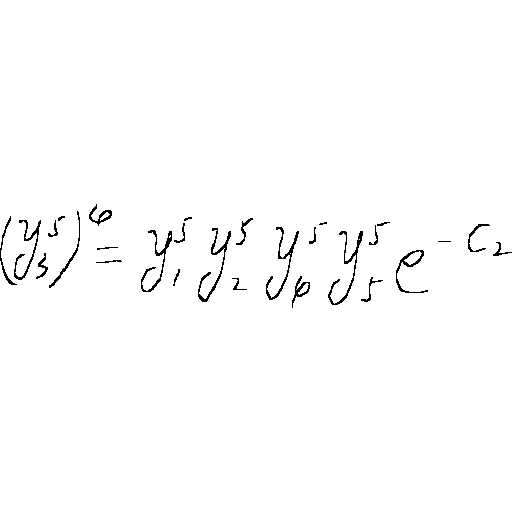 (y_3^5)^4 = y_1^5 y_2^5 y_4^5 y_5^5 e^{-C_2}